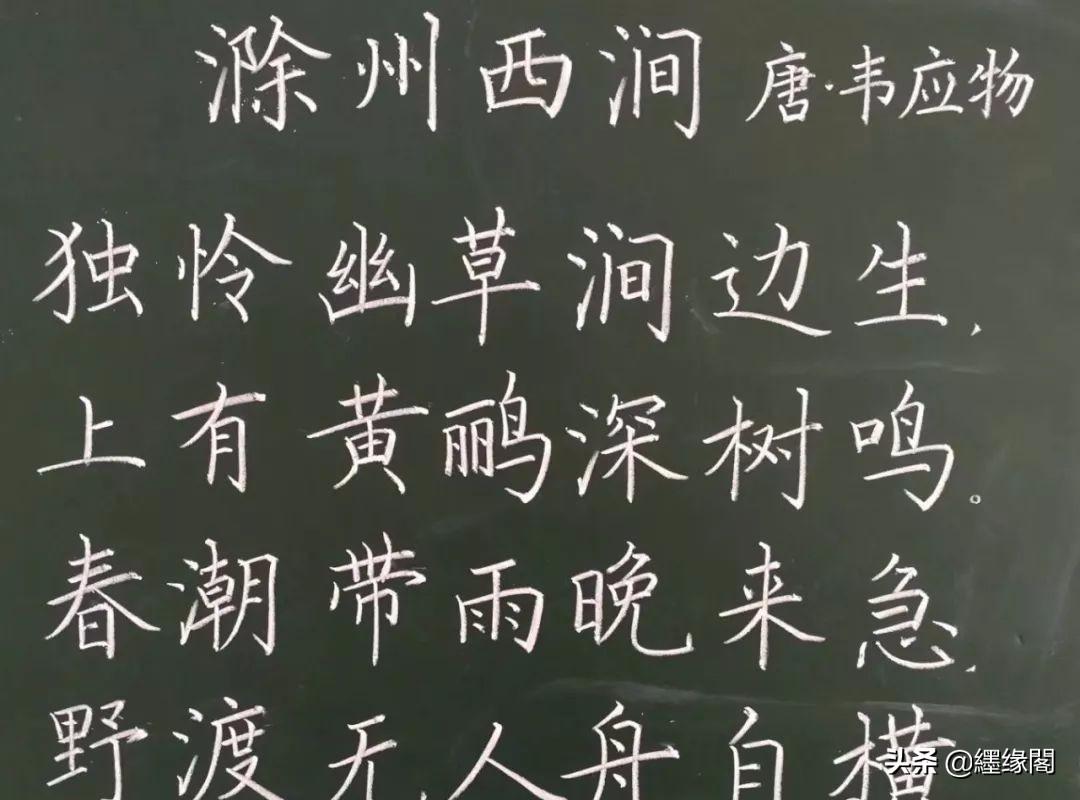 滁州西涧 唐·韦应物
独怜幽草涧边生,
上有黄鹂深树鸣。
春潮带雨晚来急,
野渡无人舟自横
头条 @纆缘閣